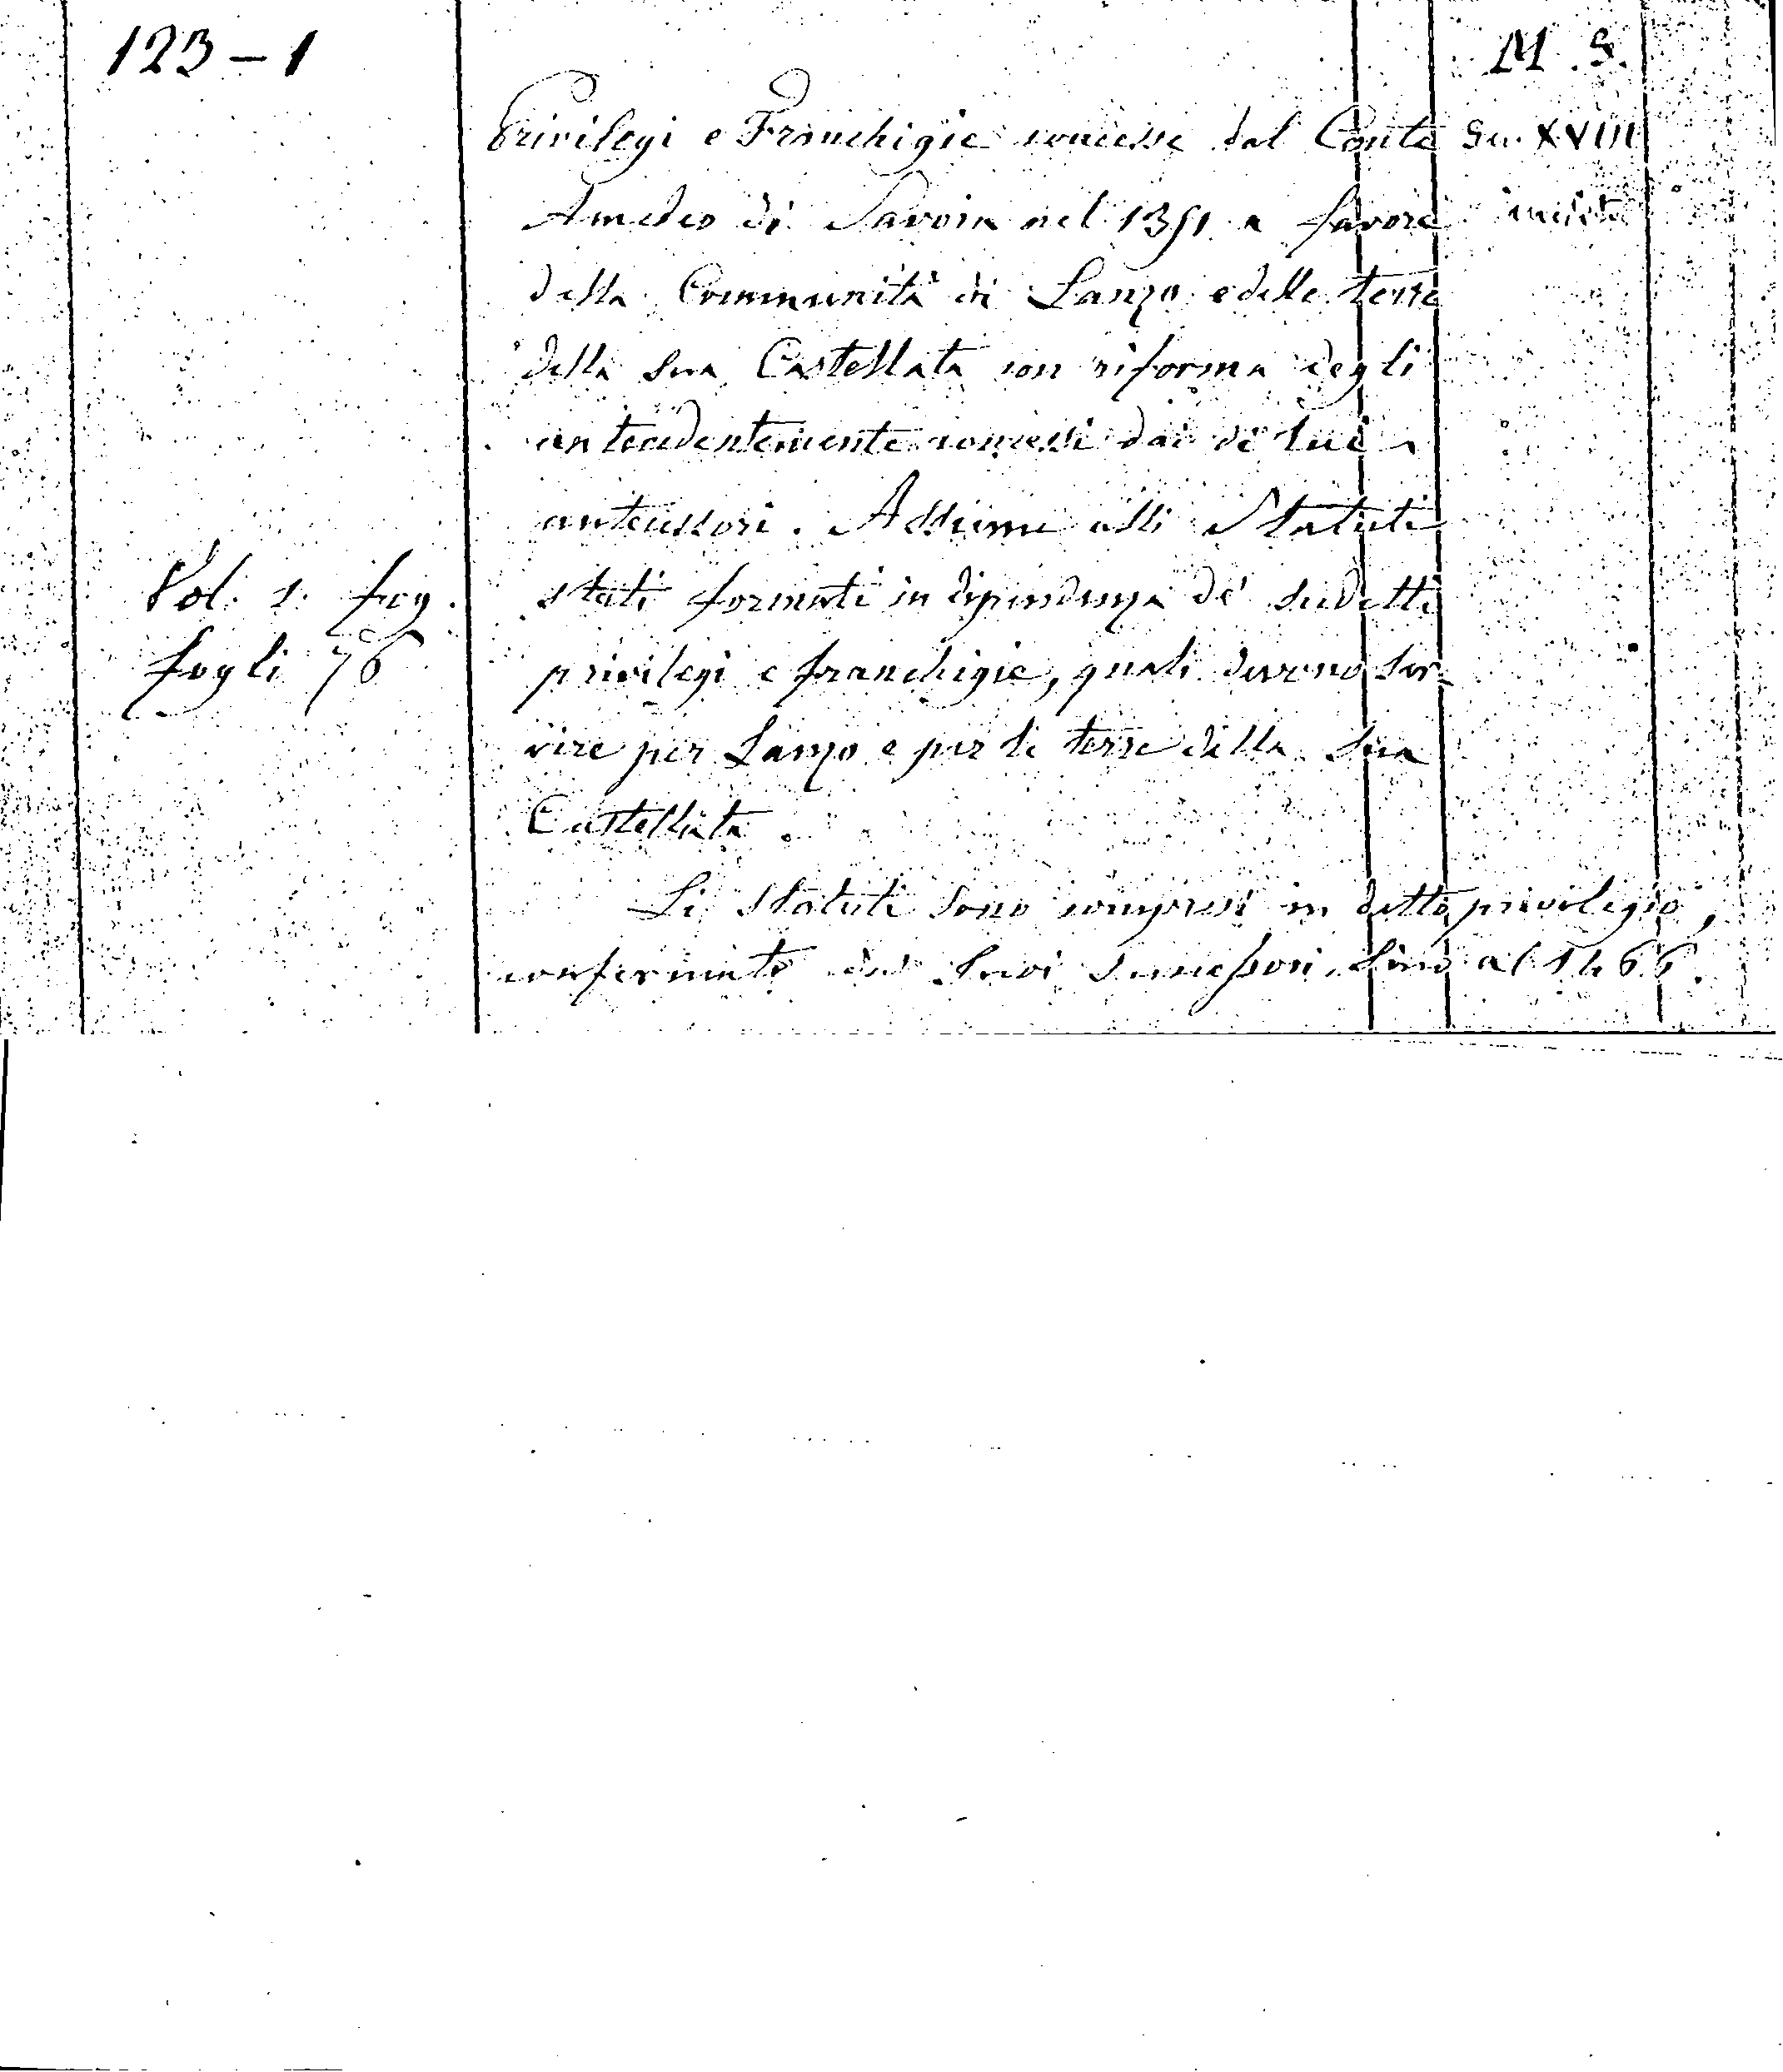 123-1
M. S.
Privilegi e Franchigie concesse dal Conte
Sec. XVIII
Amedeo di Savoia nel 1351 a favore
inedito
della Communità di Lanzo e delle terre
della sua Castellata con riforma degli
antecedentemente concessi dai di lui
antecessori. Assieme alli Statuti
Vol. 1. leg.
stati formati in dipendenza de' sudetti
fogli 76
privilegi e franchigie, quali devono ser-
vire per Lanzo e per le terre della sua
Castellata.
Li Statuti sono compresi in detto privilegio,
confermato dai suoi successori sino al 1466.